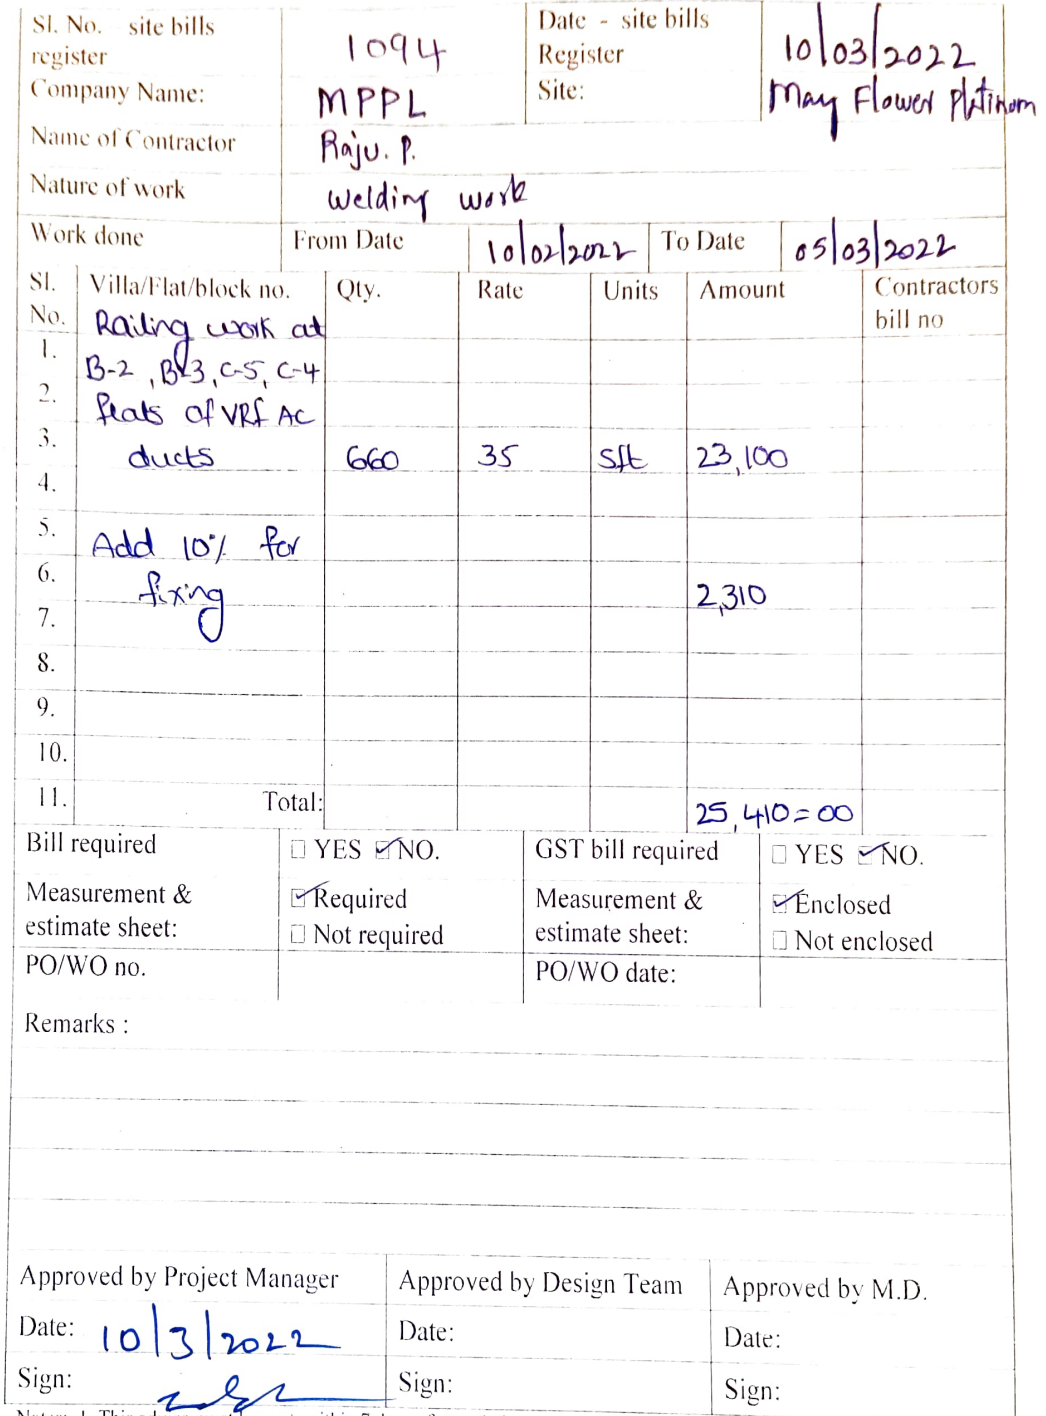 Sl. No. site bills register 1094 Date - site bills Register 10/03/2022
Company Name: MPPL Site: May Flower Platinum
Name of Contractor Raju. P.
Nature of work welding work
Work done From Date 10/02/2022 To Date 05/03/2022
Sl. No. Villa/Flat/block no. Qty. Rate Units Amount Contractors bill no
Railing work at
1.
B-2, B-3, C-5, C-4
2.
flats of VRF AC
3.
ducts 660 35 sft 23,100
4.
5.
Add 10% for
6.
fixing 2,310
7.
8.
9.
10.
11. Total: 25,410=00
Bill required YES NO. GST bill required YES NO.
Measurement & estimate sheet: Required Not required Measurement & estimate sheet: Enclosed Not enclosed
PO/WO no. PO/WO date:
Remarks :
Approved by Project Manager Approved by Design Team Approved by M.D.
Date: 10/3/2022 Date: Date:
Sign: Sign: Sign: